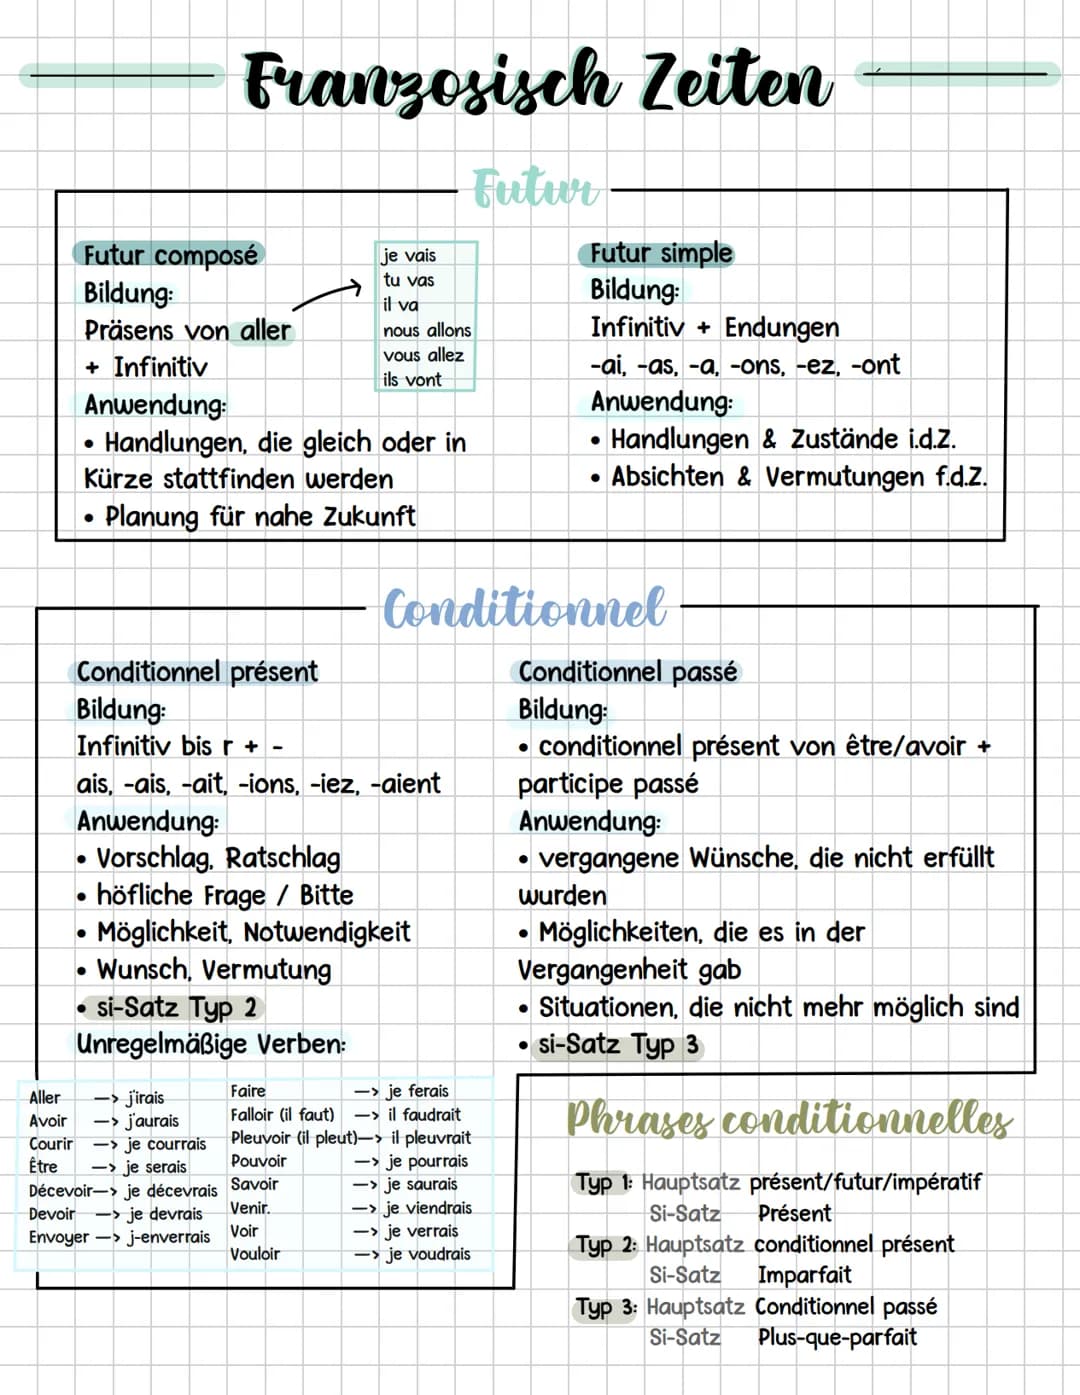 Franzosisch Zeiten
Futur
Futur composé
Bildung:
Präsens von aller
+ Infinitiv
Anwendung:
• Handlungen, die gleich oder in
Kürze stattfinden werden
• Planung für nahe Zukunft
je vais
tu vas
il va
nous allons
vous allez
ils vont
Futur simple
Bildung:
Infinitiv + Endungen
-ai, -as, -a, -ons, -ez, -ont
Anwendung:
• Handlungen & Zustände i.d.Z.
• Absichten & Vermutungen f.d.Z.
Conditionnel
Conditionnel présent
Bildung:
Infinitiv bis r + -
ais, -ais, -ait, -ions, -iez, -aient
Anwendung:
• Vorschlag, Ratschlag
• höfliche Frage / Bitte
• Möglichkeit, Notwendigkeit
• Wunsch, Vermutung
• si-Satz Typ 2
Unregelmäßige Verben:
Aller —> j'irais
Avoir —> j'aurais
Courir —> je courrais
Être —> je serais
Décevoir—> je décevrais
Devoir —> je devrais
Envoyer —> j-enverrais
Faire —> je ferais
Falloir (il faut) —> il faudrait
Pleuvoir (il pleut)—> il pleuvrait
Pouvoir —> je pourrais
Savoir —> je saurais
Venir. —> je viendrais
Voir —> je verrais
Vouloir —> je voudrais
Conditionnel passé
Bildung:
• conditionnel présent von être/avoir +
participe passé
Anwendung:
• vergangene Wünsche, die nicht erfüllt
wurden
• Möglichkeiten, die es in der
Vergangenheit gab
• Situationen, die nicht mehr möglich sind
• si-Satz Typ 3
Phrases conditionnelles
Typ 1: Hauptsatz présent/futur/impératif
Si-Satz Présent
Typ 2: Hauptsatz conditionnel présent
Si-Satz Imparfait
Typ 3: Hauptsatz Conditionnel passé
Si-Satz Plus-que-parfait